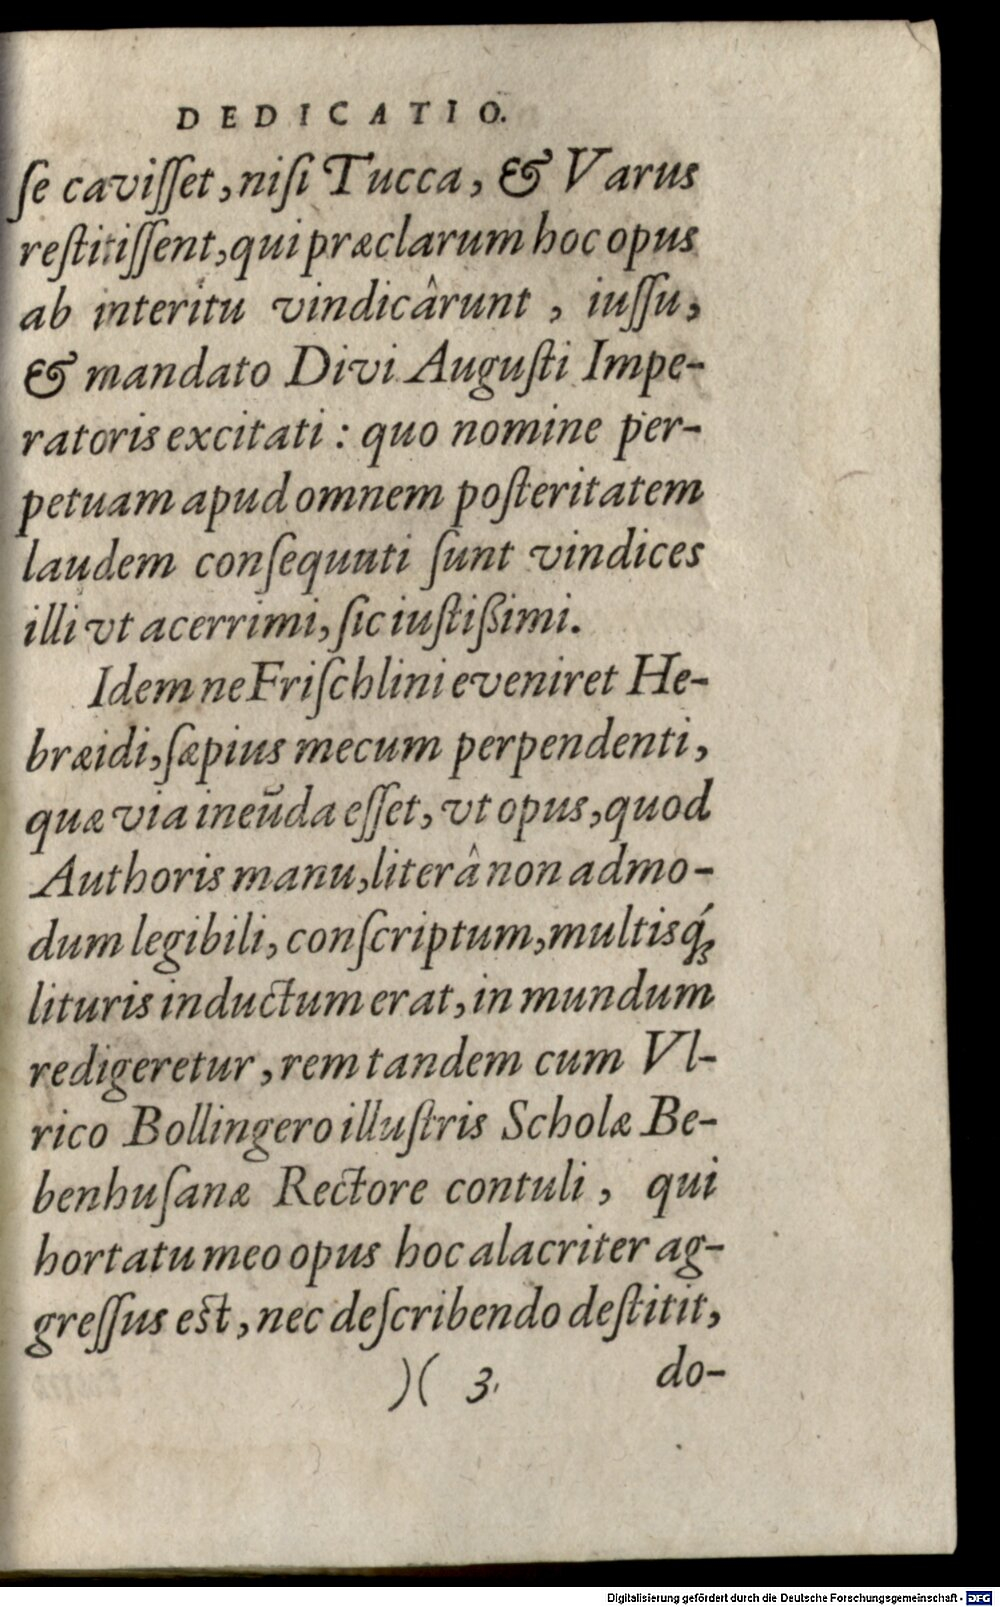 DEDICATIO.
ſe caviſſet, niſi Tucca, & Varus
reſtitiſſent, qui præclarum hoc opus
ab interitu vindicârunt, iuſſu,
& mandato Divi Auguſti Impe-
ratoris excitati : quo nomine per-
petuam apud omnem poſteritatem
laudem conſequuti ſunt vindices
illi vt acerrimi, ſic iuſtißimi.
Idem ne Friſchlini eveniret He-
bræidi, ſæpius mecum perpendenti,
quæ via ineūda eſſet, vt opus, quod
Authoris manu, literâ non admo-
dum legibili, conſcriptum, multisq́;
lituris inductum erat, in mundum
redigeretur, rem tandem cum Vl-
rico Bollingero illuſtris Scholæ Be-
benhuſanæ Rectore contuli, qui
hortatu meo opus hoc alacriter ag-
greſſus eſt, nec deſcribendo deſtitit,
)( 3. do-
Digitalisierung gefördert durch die Deutsche Forschungsgemeinschaft - DFG